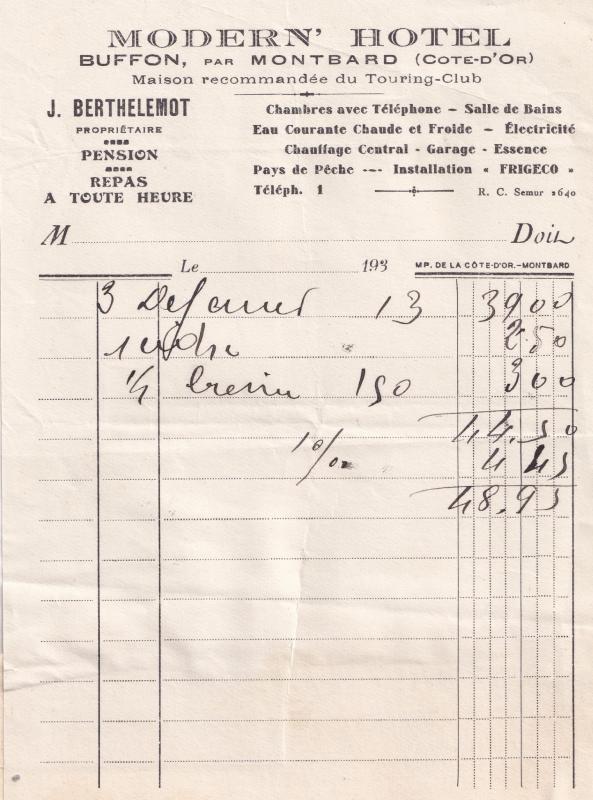 MODERN' HOTEL
BUFFON, PAR MONTBARD (COTE-D'OR)
Maison recommandée du Touring-Club
J. BERTHELEMOT
PROPRIÉTAIRE
PENSION
REPAS
A TOUTE HEURE
Chambres avec Téléphone – Salle de Bains
Eau Courante Chaude et Froide – Électricité
Chauffage Central - Garage - Essence
Pays de Pêche --- Installation « FRIGECO »
Téléph. 1
R. C. Semur 2640
M Doit
Le 193
MP. DE LA CÔTE-D'OR.–MONTBARD
3 Dejeuner 13 39 00
1 cidre 2 50
150 3 00
44.50
10/00 4 45
48.95